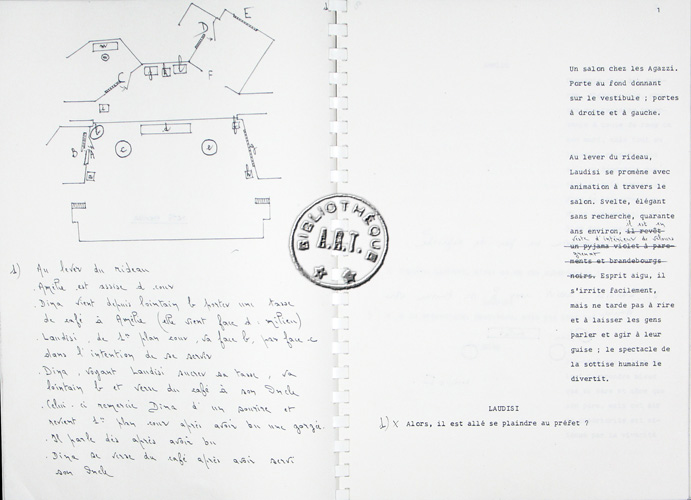 E
D
C
F
B
A
c
e
1) Au lever du rideau
. Amélie est assise à cour
. Dina vient depuis lointain b porter une tasse
de café à Amélie (elle vient face d. milieu)
. Laudisi, de 1er plan cour, va face b, par face c
dans l'intention de se servir
. Dina, voyant Laudisi sucrer sa tasse, va
lointain b et verse du café à son Oncle
. Celui-ci remercie Dina d'un sourire et
revient 1er plan cour après avoir bu une gorgée.
. Il parle dès après avoir bu
. Dina se verse du café après avoir servi
son Oncle
BIBLIOTHÈQUE
A.R.T.
1
Un salon chez les Agazzi.
Porte au fond donnant
sur le vestibule ; portes
à droite et à gauche.
Au lever du rideau,
Laudisi se promène avec
animation à travers le
salon. Svelte, élégant
sans recherche, quarante
il est en
ans environ, il revêt
veste d'intérieur de velours
un pyjama violet à pare-
grenat
ments et brandebourgs
noirs. Esprit aigu, il
s'irrite facilement,
mais ne tarde pas à rire
et à laisser les gens
parler et agir à leur
guise ; le spectacle de
la sottise humaine le
divertit.
LAUDISI
1) X Alors, il est allé se plaindre au préfet ?